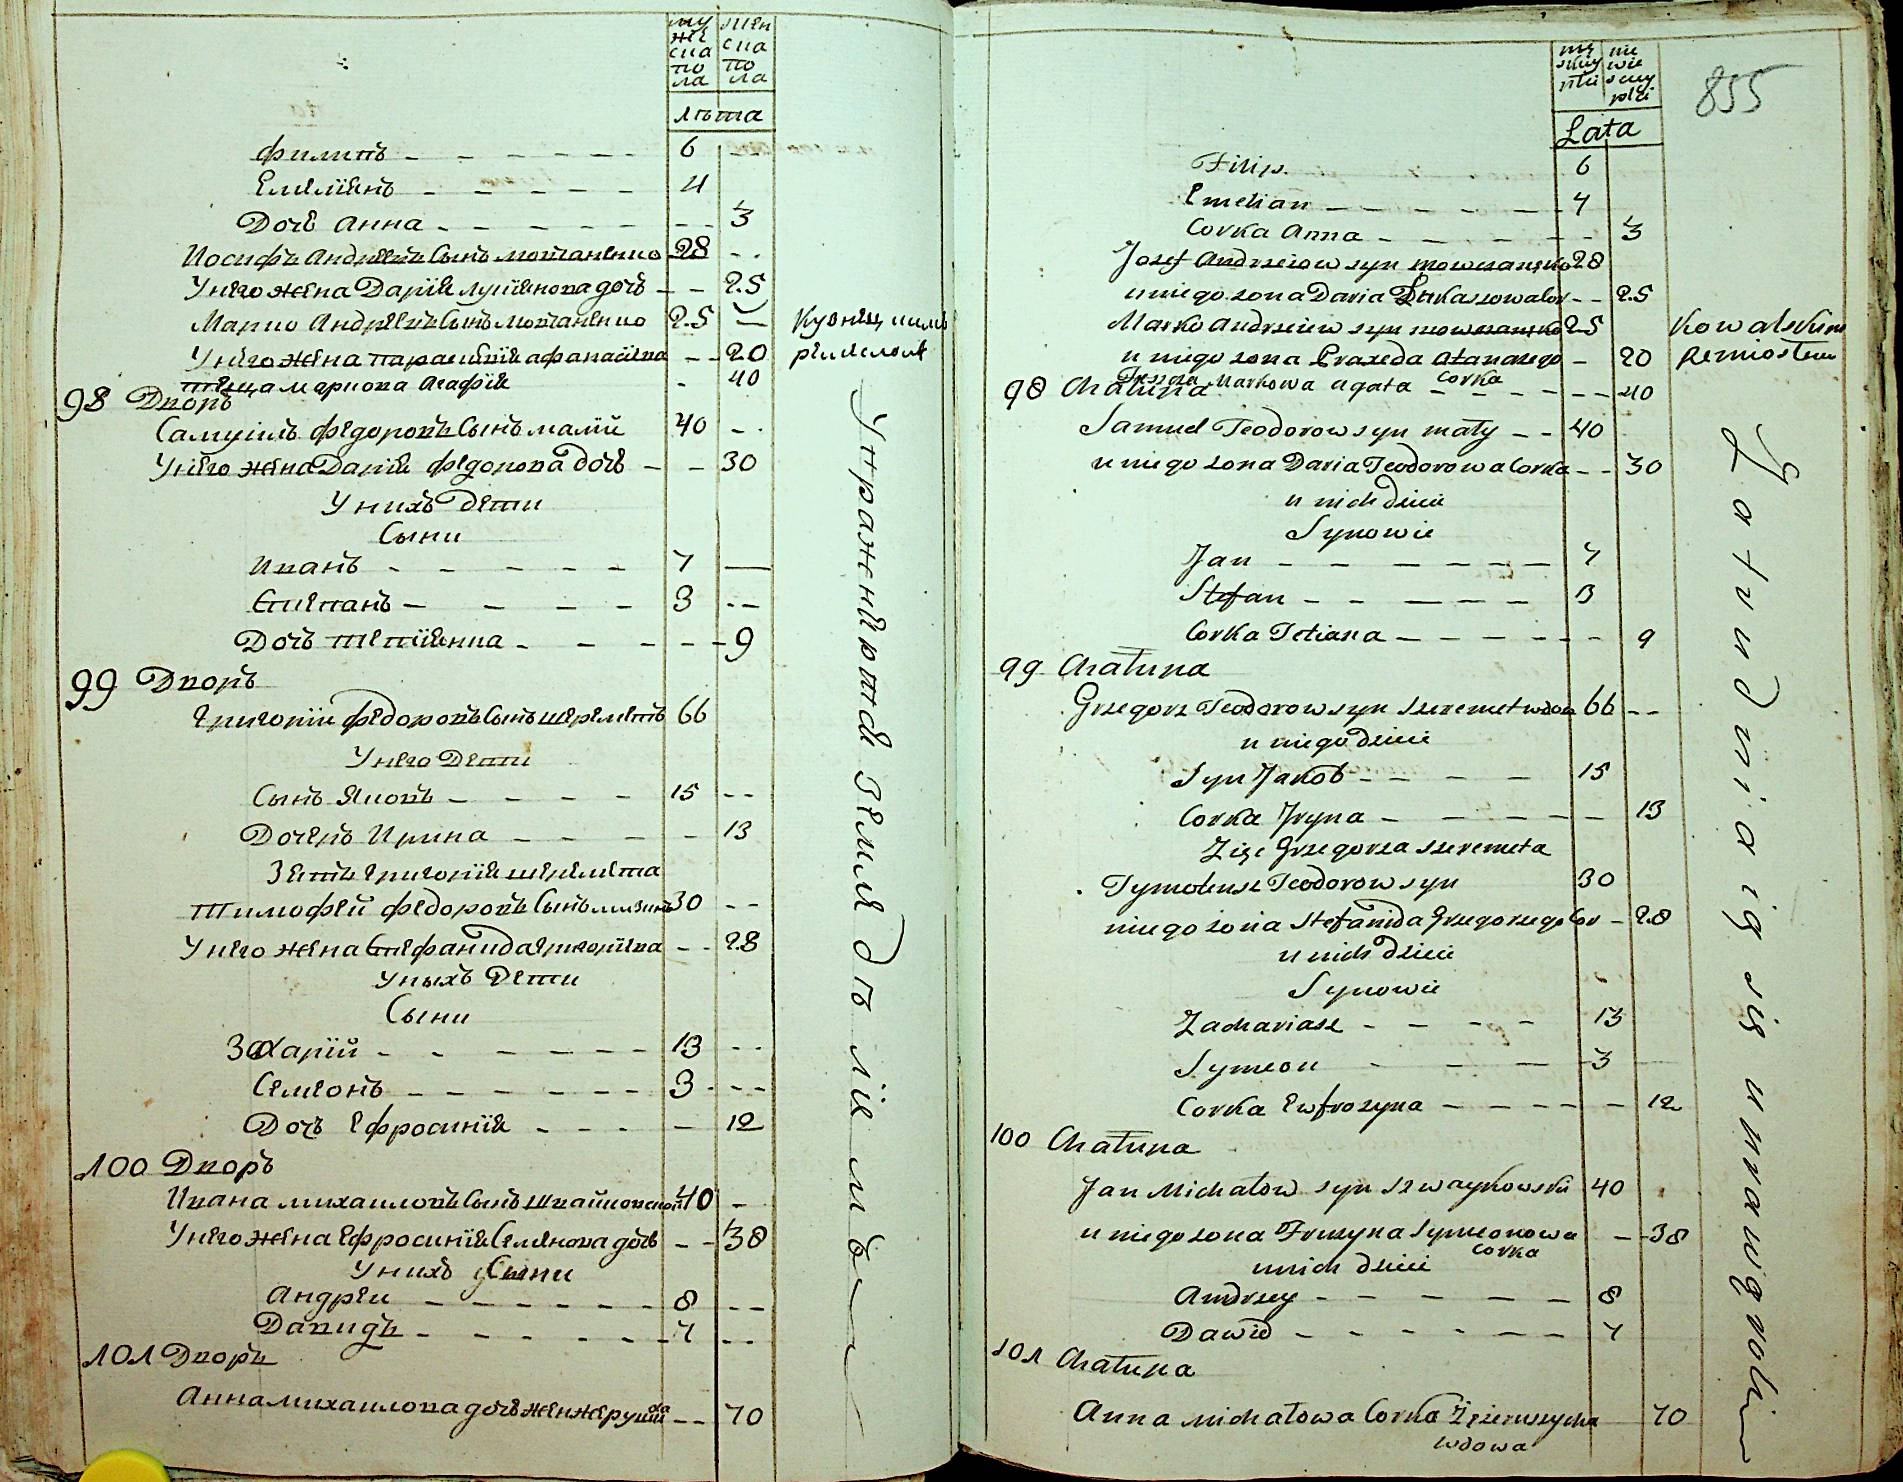 мужеска пола
женска пола
лѣта
Филипъ 6
Емелїянъ 4
Дочь Анна 3
Иосифъ Андреевъ Сынъ 28
У него жена Дарїя дочь 25
Марко Андреевъ Сынъ 25 Кузнецкимъ
У него жена Параскевїя Афанасїева 20 ремесломъ
теща Маркова Агафїя 40
98 Дворъ
Самуилъ Федоровъ Сынъ малїй 40
У него жена Дарїя Федорова дочь 30
У нихъ дети
Сыни
Иванъ 7
Степанъ 3
Дочь Тетїянна 9
99 Дворъ
Григорїй Федоровъ Сынъ Шереметъ 66
У него Дети
Сынъ Яковъ 15
Дочеръ Ирина 13
Зять Григорїя Шеремета
Тимофей Федоровъ Сынъ 30
У него жена Стефанида Григорїева 28
У ныхъ Дети
Сыни
Захарїй 13
Семеонъ 3
Дочь Ефросинїя 12
100 Дворъ
Ивана Михаиловъ Сынъ 40
У него жена Ефросинїя Семенова дочь 38
У нихъ Сыни
Андрей 8
Давидъ 7
101 Дворъ
Анна Михаилова дочь 70
Упражняются земледѣлїемъ
męskiey płci
niewieściey płci
855
Lata
Filip 6
Emelian 4
Corka Anna 3
Jozef Andrzeiow syn 28
u niego zona Daria Łukaszowa Cor 25
Marko Andrzeiew syn 25 Kowalskim
u niego zona Praxeda Atanazego 20 Remiosłem
Teszcza Markowa Agata Corka 40
98 Chałupa
Samuel Teodorow syn mały 40
u niego zona Daria Teodorowa Corka 30
u nich dzieci
Synowie
Jan 7
Stefan 3
Corka Tetiana 9
99 Chałupa
Grzegorz Teodorow syn Szeremet wdow 66
u niego dzieci
Syn Jakob 15
Corka Jryna 13
Zięć Grzegorza Szeremeta
Tymoteusz Teodorow syn 30
u niego zona Stefanida Grzegorzego Cor 28
u nich dzieci
Synowie
Zachariasz 13
Symeon 3
Corka Ewfrozyna 12
100 Chałupa
Jan Michałow syn Szwaykowski 40
u niego zona Fruzyna Symeonowa Corka 38
u nich dzieci
Andrzey 8
Dawid 7
101 Chałupa
Anna Michałowa Corka 70
wdowa
Zatrudniaią się uprawą roli